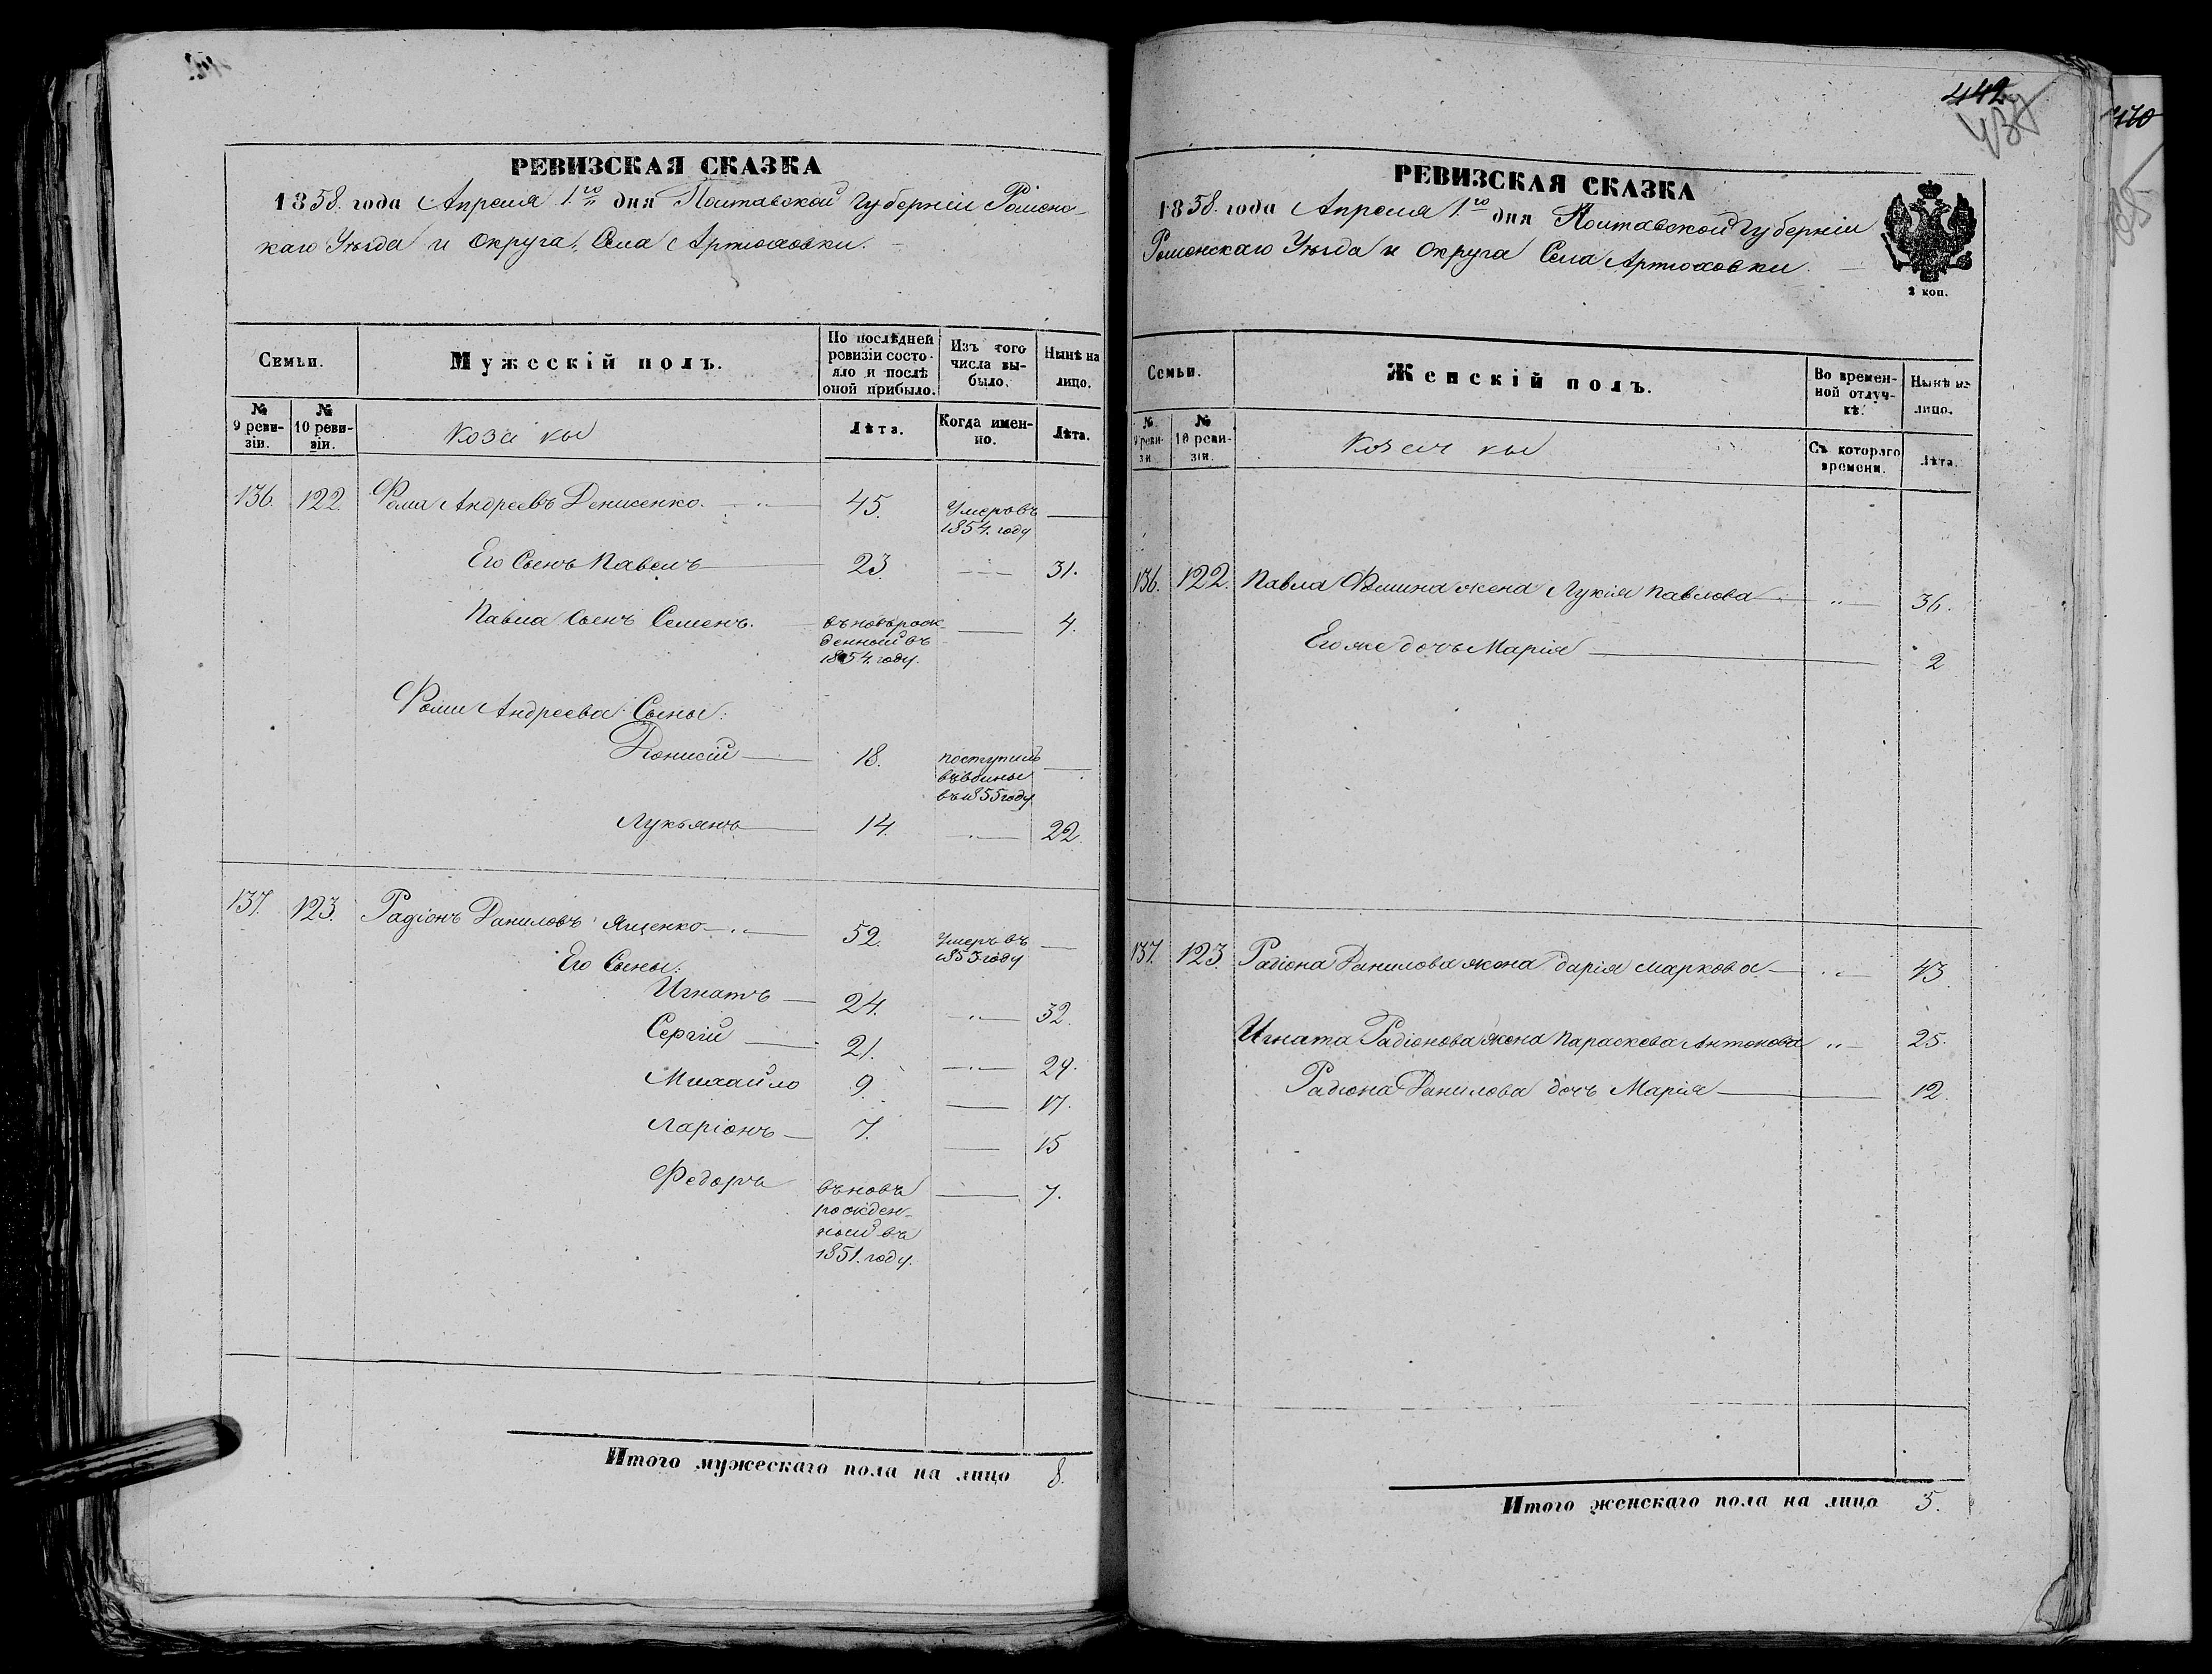 РЕВИЗСКАЯ СКАЗКА
1858. года Апреля 1.го дня Полтавской Губерніи Роменс-
каго Уѣзда и Округа, Села Артюховки.
Семьи.
Мужескій полъ.
По послѣдней ревизіи состо-яло и послѣ оной прибыло.
Изъ того числа вы-было.
Нынѣ на лицо.
№ 9 реви-зіи.
№ 10 реви-зіи.
Козаки
Лѣта.
Когда имен-но.
Лѣта.
136. 122. Фома Андреевъ Денисенко. 45. Умеръ въ 1854. году
Его Сынъ Павелъ 23. 31.
Павла Сынъ Семенъ. въновь рож-денный въ 1854. году. 4.
Фомы Андреева Сыны:
Діонисій 18. поступилъ въ воины въ 1855 году
Лукьянъ 14. 22.
137. 123. Радіонъ Даниловъ Ященко 52. Умеръ въ 1853 году
Его Сыны:
Игнатъ 24. 32.
Сергій 21. 29.
Михайло 9. 17.
Ларіонъ 7. 15
Федоръ въновь рожден-ный въ 1851. году. 7.
Итого мужескаго пола на лицо 8.
442
439
РЕВИЗСКАЯ СКАЗКА
1858. года Апреля 1.го дня Полтавской Губерніи
Роменскаго Уѣзда и Округа Села Артюховки.
2 коп.
Семьи.
Женскій полъ.
Во времен-ной отлуч-кѣ.
Нынѣ на лицо.
№ 9 реви-зіи
№ 10 реви-зіи.
Козачки
Съ котораго времени.
Лѣта.
136. 122. Павла Фомина жена Лукія Павлова 36.
Его же дочь Марія 2
137. 123. Радіона Данилова жена Дарія Маркова 43.
Игната Радіонова жена Параскева Антонова 25.
Радіона Данилова дочь Марія 12.
Итого женскаго пола на лицо 5.